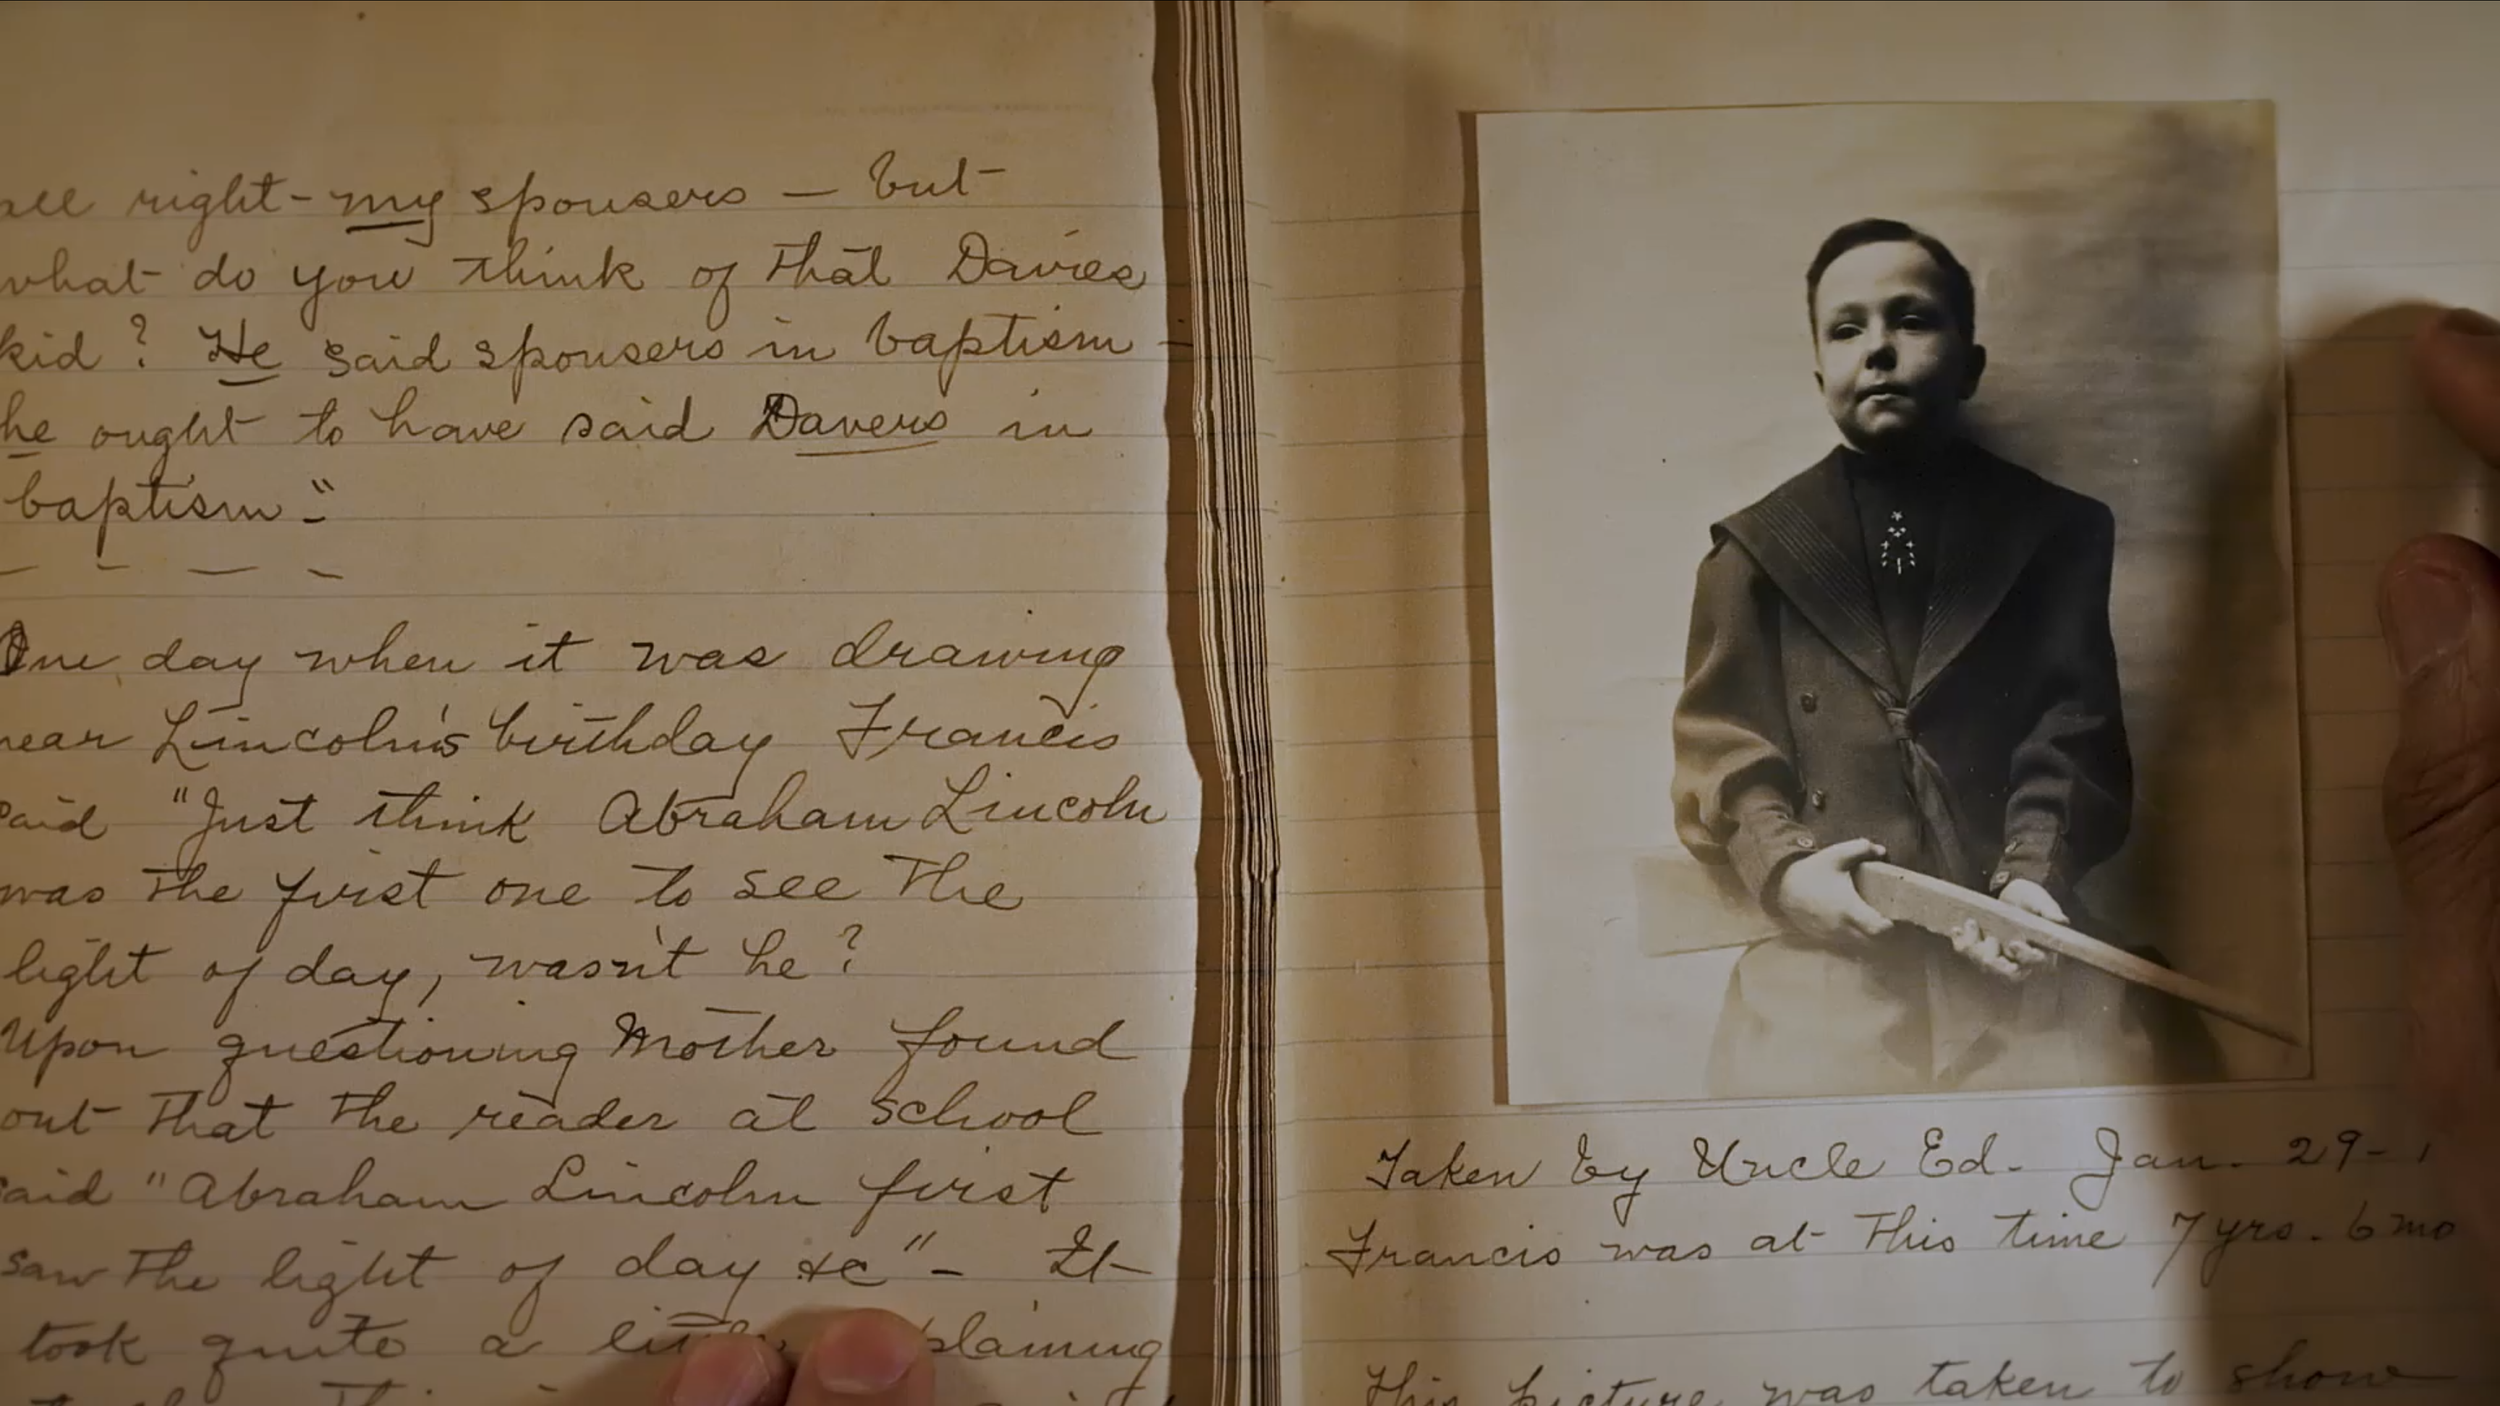 all right - my spousers - but
what do you think of that Davies
kid? He said spousers in baptism -
he ought to have said Davers in
baptism."
One day when it was drawing
near Lincoln's birthday Francis
said "Just think Abraham Lincoln
was the first one to see the
light of day, wasn't he?
Upon questioning Mother found
out that the reader at school
said "Abraham Lincoln first
saw the light of day &c" - It
took quite a
Taken by Uncle Ed. Jan. 29-
Francis was at this time 7 yrs. 6 mo
This picture was taken to show